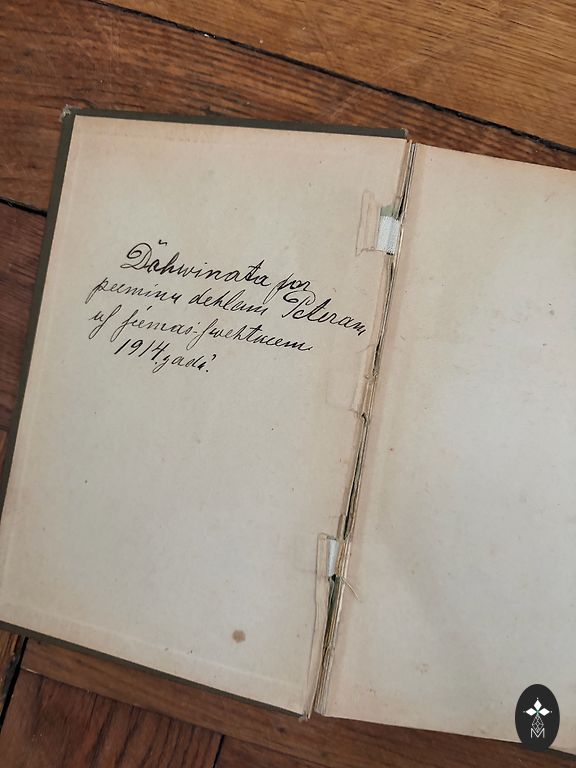 Dāhwinata par
peeminu dehlam Peteram
uf feemas-fwehtkeem
1914. gadā.
M